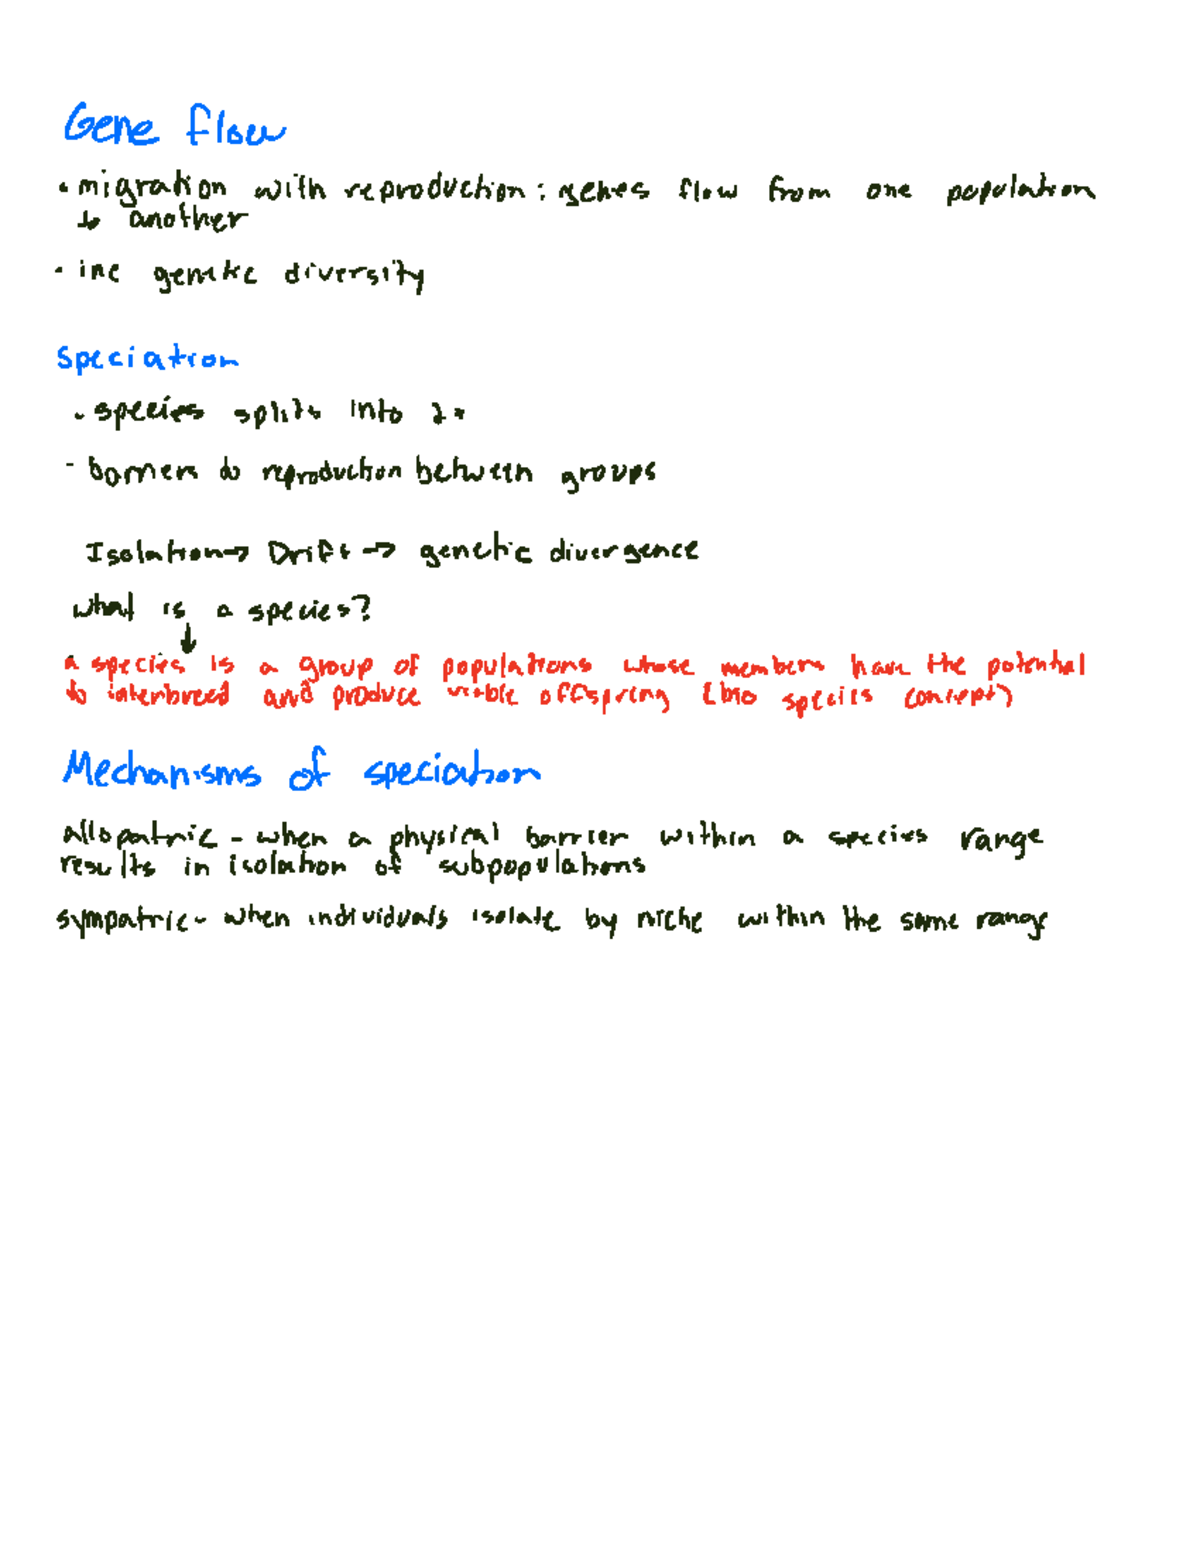 Gene flow
• migration with reproduction: genes flow from one population
to another
• inc genetic diversity
Speciation
- species splits into 2+
- barriers to reproduction between groups
Isolation → Drift → genetic divergence
what is a species?
↓
a species is a group of populations whose members have the potential
to interbreed and produce viable offspring (bio species concept)
Mechanisms of speciation
allopatric - when a physical barrier within a species range
results in isolation of subpopulations
sympatric - when individuals isolate by niche within the same range